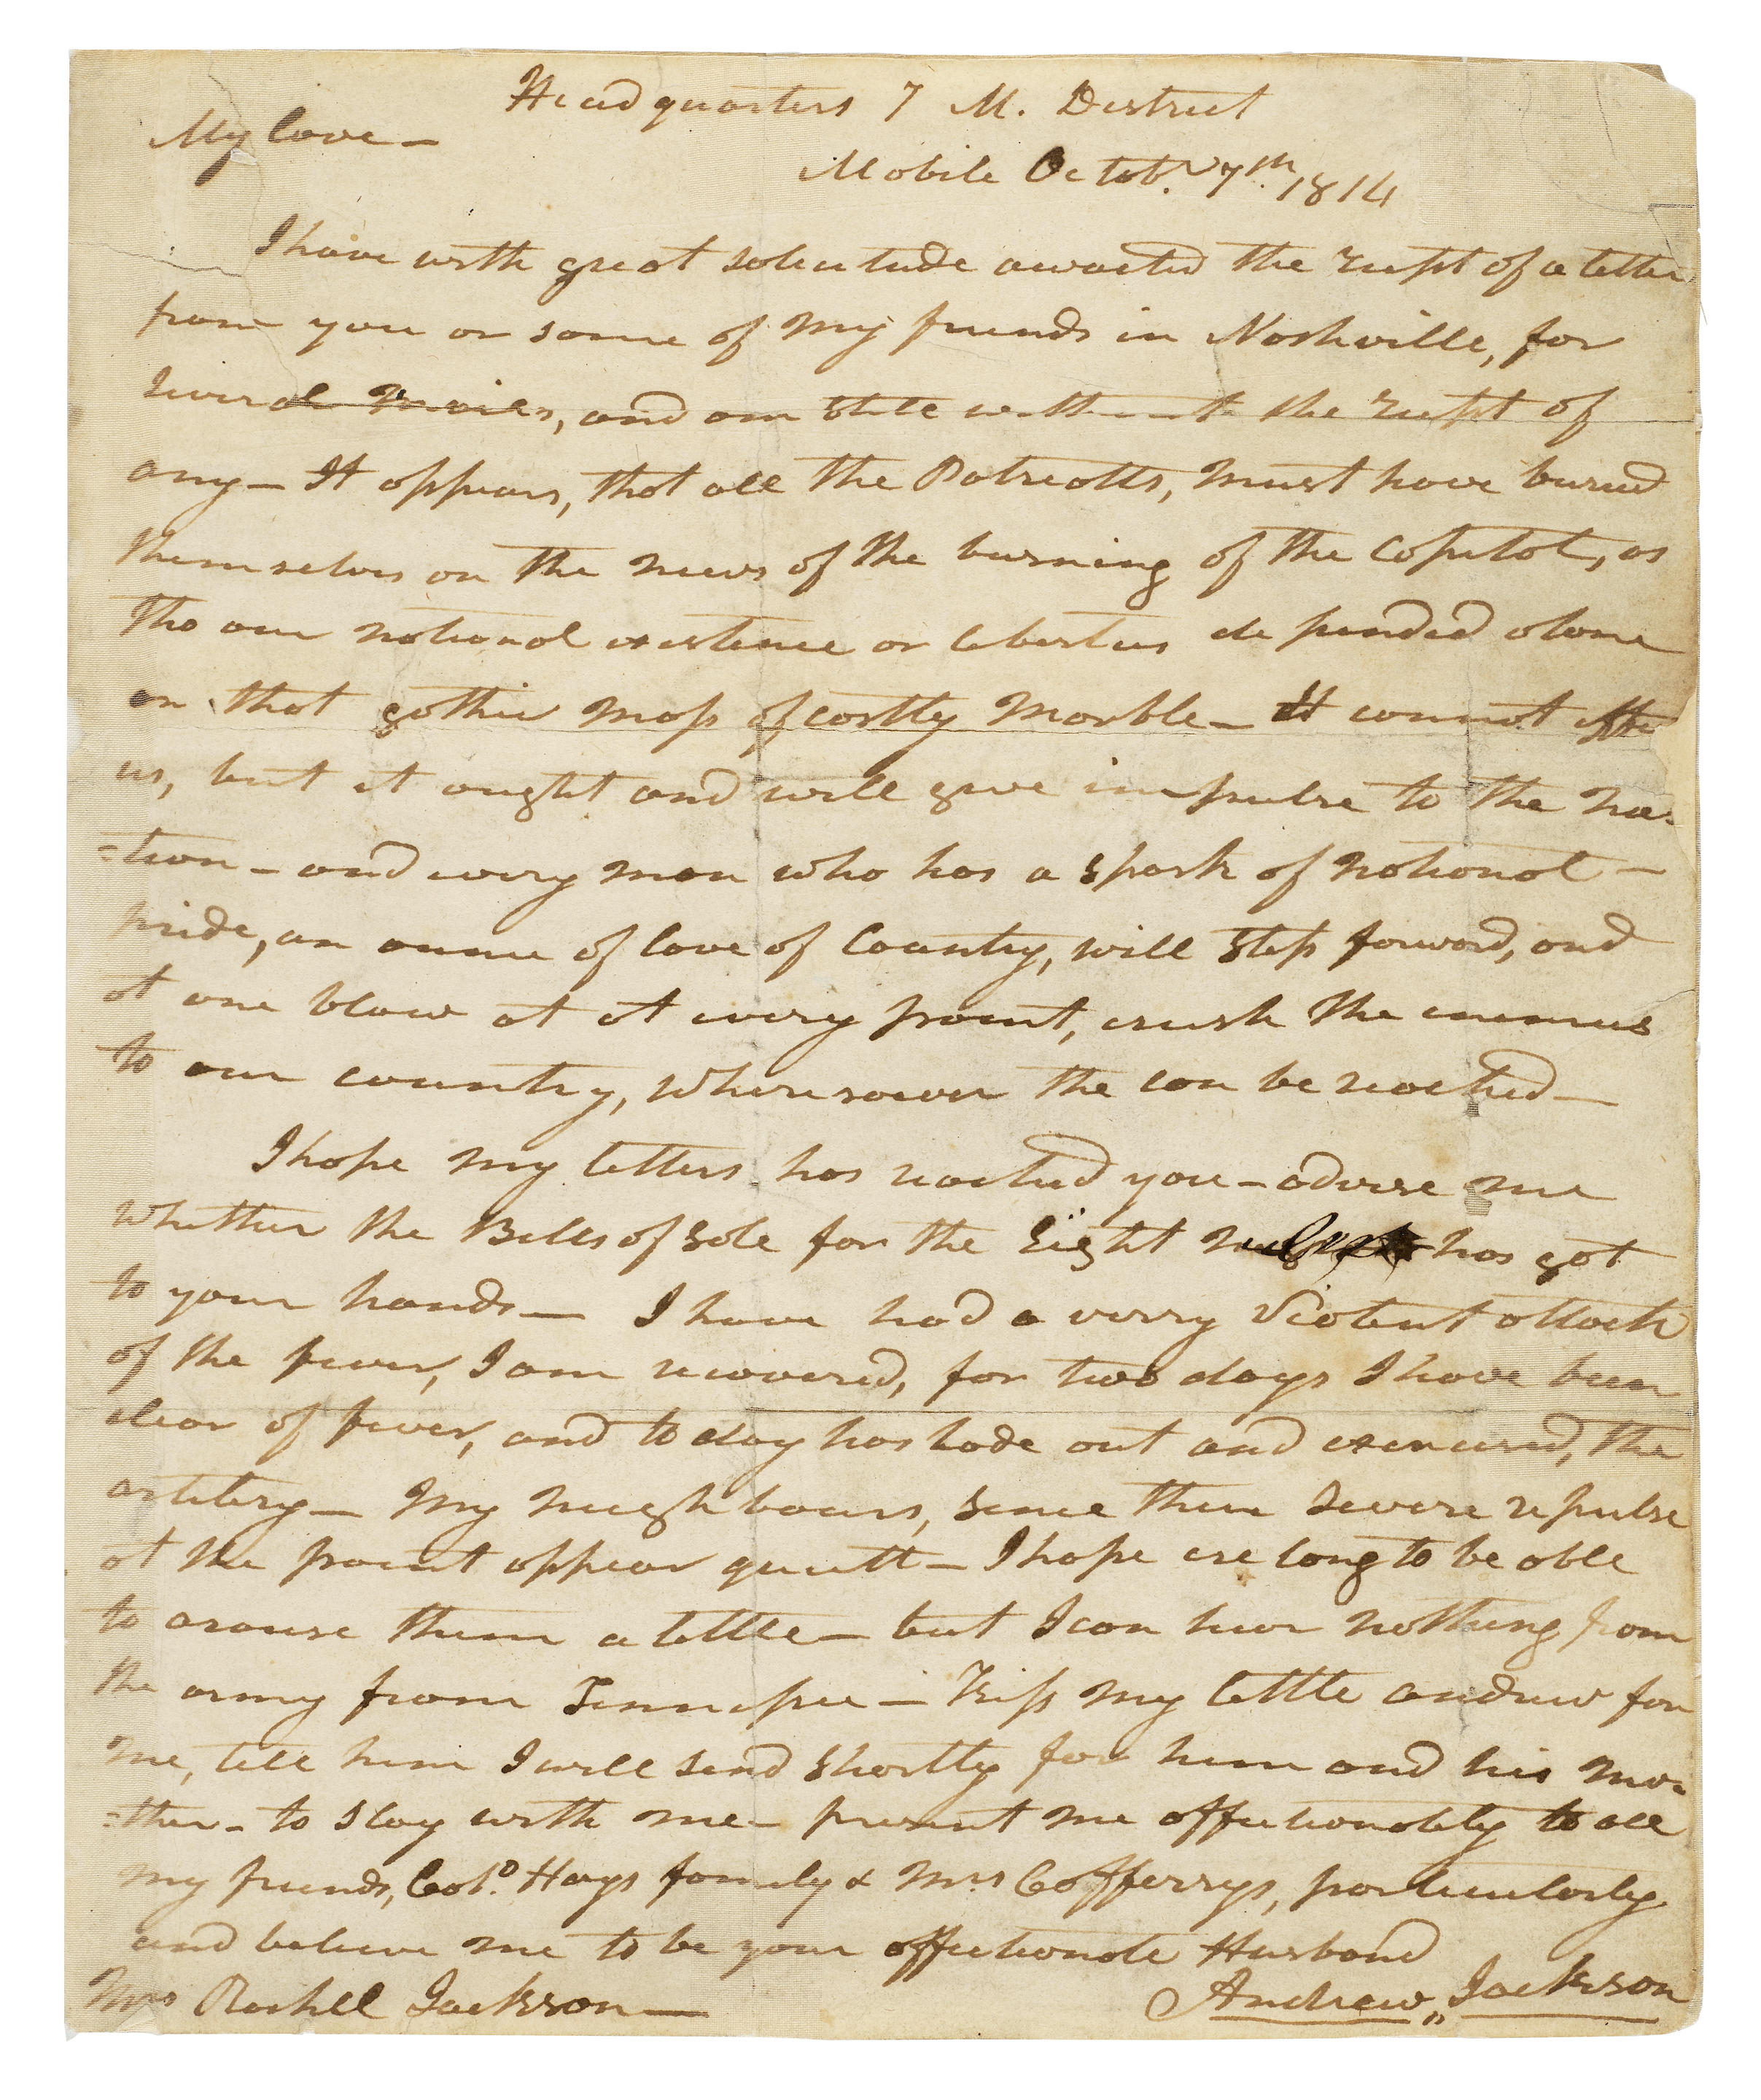 Headquarters 7 M. District
My love—
Mobile Octobr. 7th. 1814
I have with great solicitude awaited the recpt of a letter
from you or some of my friends in Nashville, for
several mails, and am still without the recpt of
any— It appears, that all the Patriotts, must have buried
themselves on the news of the burning of the Capitol, as
tho our national existence or liberties depended alone
on that gothic mass of costly marble— It cannot
us, but it ought and will give impulse to the na-
-tion— and every man who has a spark of national—
pride, or of love of Country, will step forward, and
at one blow at at every point, crush the enemies
to our country, wheresoever the can be reached—
I hope my letters has reached you— advise me
whether the Bills of Sale for the Eight has got
to your hands— I have had a verry violent attack
of the fever, I am recovered, for two days I have been
clear of fever, and to day has rode out and exercised, the
artilery— My neighbours, since their severe repulse
at the point appear quiett— I hope ere long to be able
to arouse them a little— but I can hear nothing from
the army from Tennessee— Kiss my little andrew for
me, tell him I will send shortly for him and his mo-
-ther— to stay with me— present me affectionately to all
my friends, Colo. Hays family & Mrs Cofferrys, particularly
and believe me to be your affectionate Husband
Mrs Rachel Jackson—
Andrew Jackson